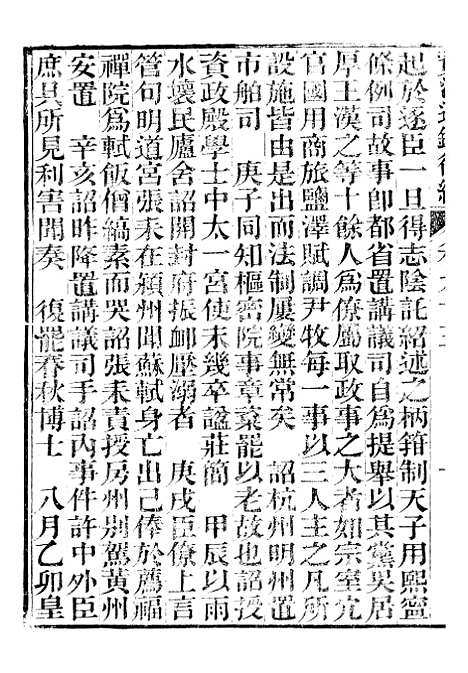 起於逐臣一旦得志陰託紹述之柄箝制天子用熙寧
條例司故事卽都省置講議司自爲提舉以其黨吳居
厚王漢之等十餘人爲僚屬取政事之大者如宗室宂
官國用商旅鹽澤賦調尹牧每一事以三人主之凡所
設施皆由是出而法制屢變無常矣　詔杭州明州置
市舶司　庚子同知樞密院事章楶罷以老故也詔授
資政殿學士中太一宮使未幾卒諡莊簡　甲辰以雨
水壞民廬舍詔開封府振卹壓溺者　庚戌臣僚上言
管句明道宮張耒在潁州聞蘇軾身亡出己俸於薦福
禪院爲軾飯僧縞素而哭詔張耒責授房州別駕黃州
安置　辛亥詔昨降置講議司手詔內事件許中外臣
庶具所見利害聞奏　復罷春秋博士　八月乙卯皇